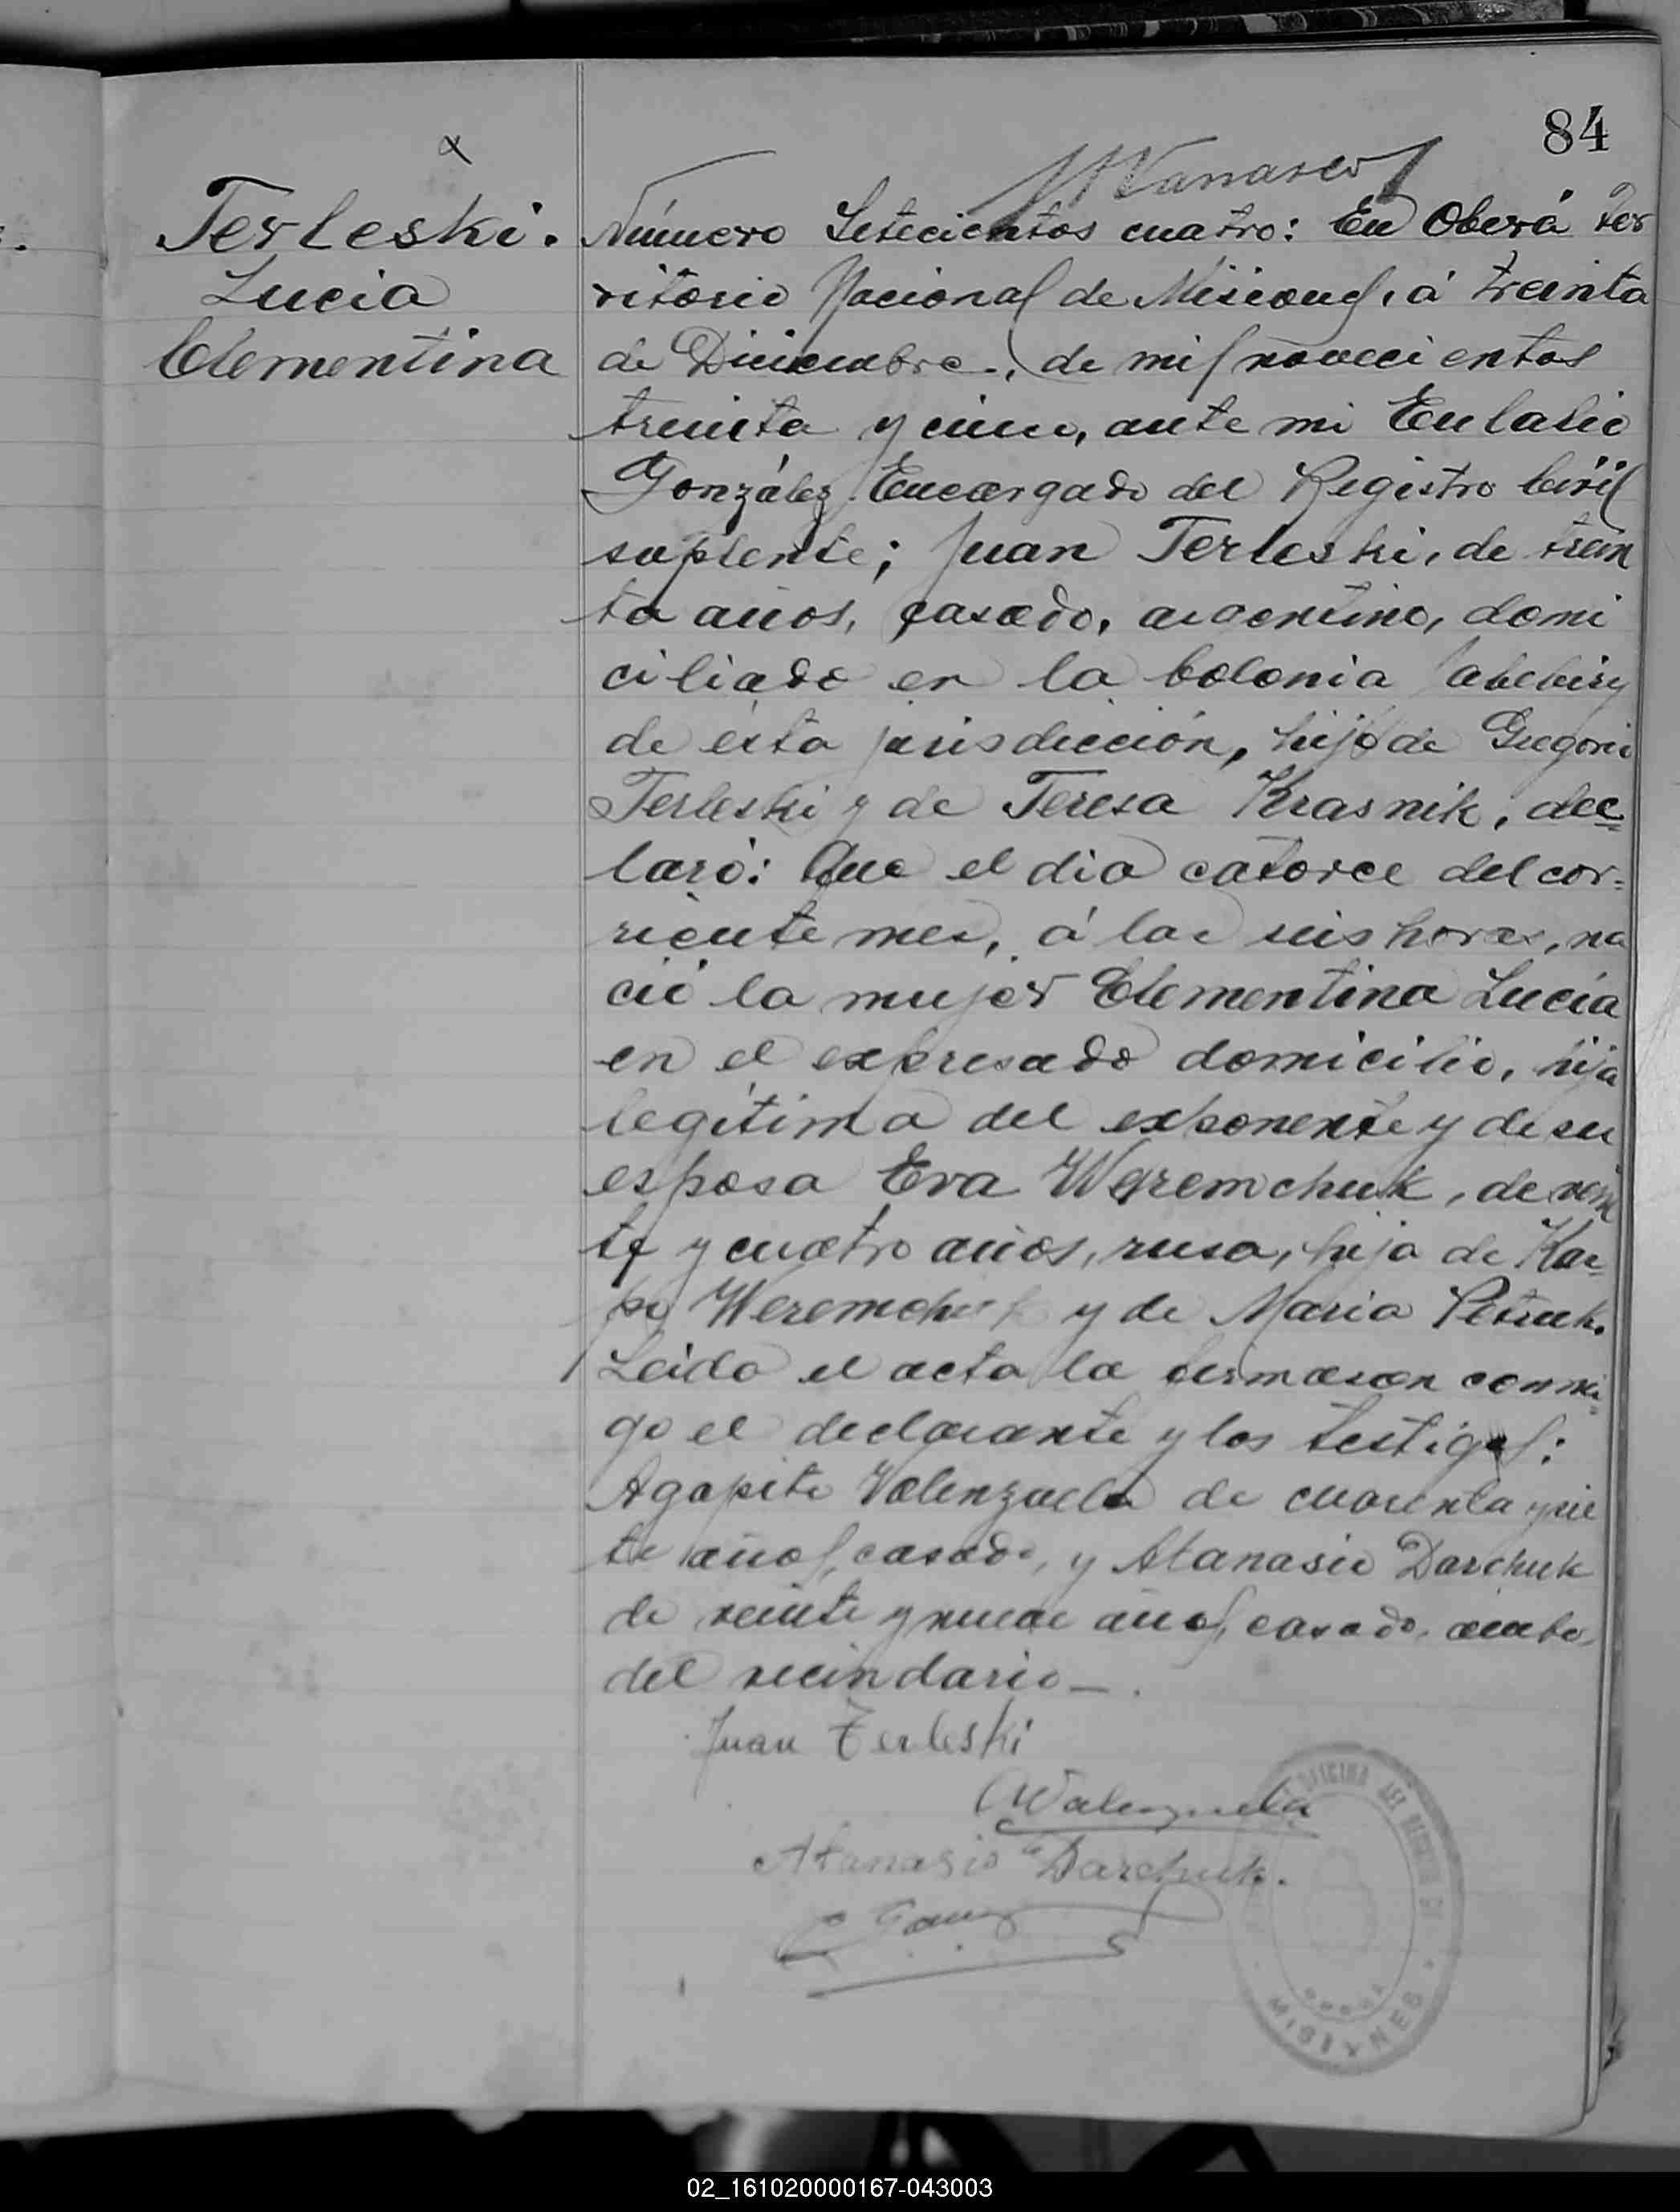 84
Terleski.
Lucia
Clementina
Número Setecientos cuatro: En Oberá Ter
ritorio Nacional de Misiones, á treinta
de Diciembre, de mil novecientos
treinta y cinco, ante mi Eulalio
González Encargado del Registro Civil
suplente; Juan Terleski, de trein
ta años, casado, argentino, domi
ciliado en la Colonia Yabebiry
de ésta jurisdicción, hijo de Gregorio
Terleski y de Teresa Krasnik, dec=
laró: Que el dia catorce del cor=
riente mes, á las seis horas, na
ció la mujer Clementina Lucía
en el expresado domicilio, hija
legítima del exponente y de su
esposa Eva Weremchuk, de vein
te y cuatro años, rusa, hija de Kar=
po Weremchuk y de Maria Petruk.
Leida el acta la firmaron conmi=
go el declarante y los testigos:
Agapito Valenzuela de cuarenta y sie
te años, casado, y Atanasio Darchuk
de veinte y nueve años, casado, ambos
del vecindario—.
Juan Terleski
AValenzuela
Atanasio Darchuk.
OFICINA DEL REGISTRO
MISIONES
02_161020000167-043003